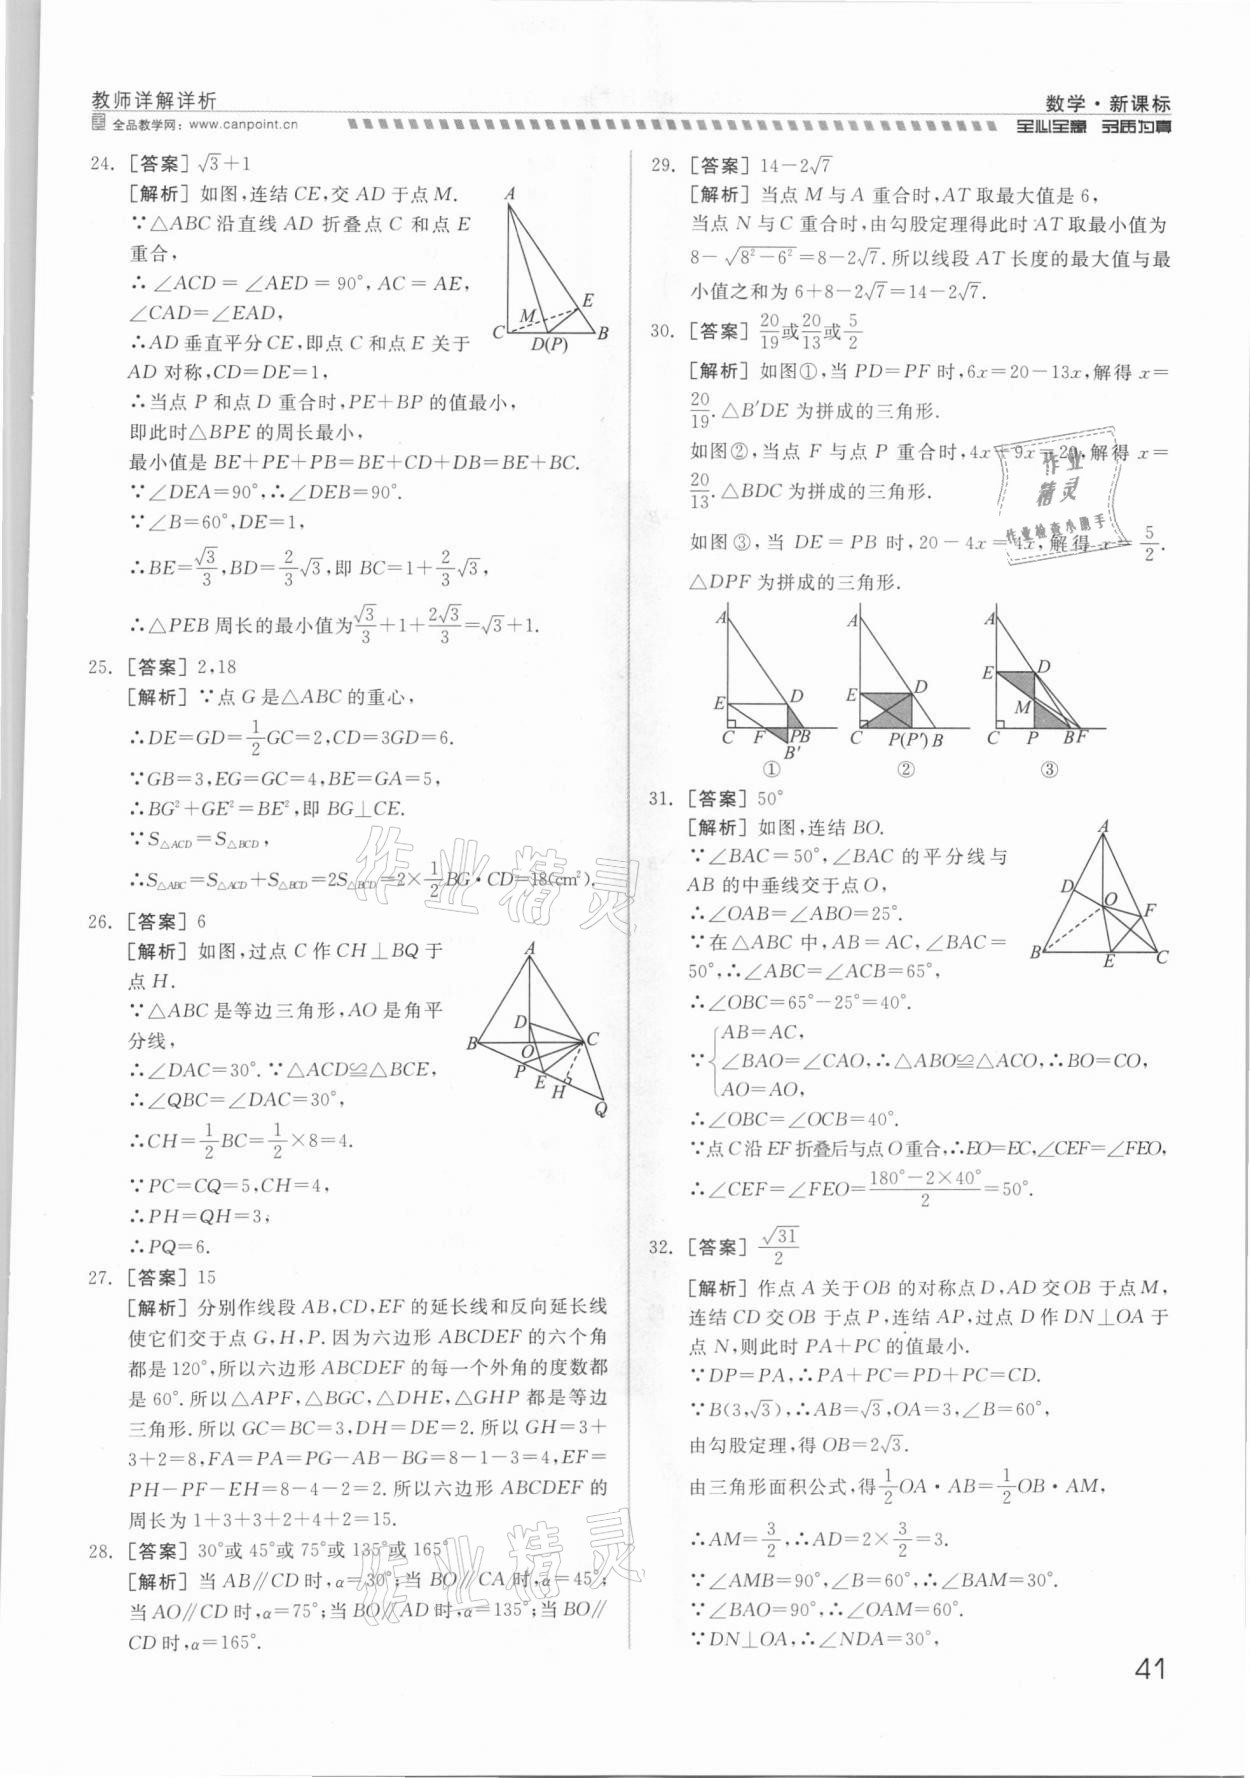 教师详解详析
数学·新课标
全品教学网：www.canpoint.cn
全心全意 名质为真
24. [答案] √3+1
[解析] 如图,连结CE,交AD于点M.
∵△ABC沿直线AD折叠点C和点E
重合,
∴∠ACD=∠AED=90°,AC=AE,
∠CAD=∠EAD,
∴AD垂直平分CE,即点C和点E关于
AD对称,CD=DE=1,
∴当点P和点D重合时,PE+BP的值最小,
即此时△BPE的周长最小,
最小值是BE+PE+PB=BE+CD+DB=BE+BC.
∵∠DEA=90°,∴∠DEB=90°.
∵∠B=60°,DE=1,
∴BE=√3/3,BD=2/3√3,即BC=1+2/3√3,
∴△PEB周长的最小值为√3/3+1+2√3/3=√3+1.
A
E
M
C
D(P)
B
25. [答案] 2,18
[解析] ∵点G是△ABC的重心,
∴DE=GD=1/2GC=2,CD=3GD=6.
∵GB=3,EG=GC=4,BE=GA=5,
∴BG²+GE²=BE²,即BG⊥CE.
∵S△ACD=S△BCD,
∴S△ABC=S△ACD+S△BCD=2S△BCD=2×1/2BG·CD=18(cm²).
26. [答案] 6
[解析] 如图,过点C作CH⊥BQ于
点H.
∵△ABC是等边三角形,AO是角平
分线,
∴∠DAC=30°.∵△ACD≌△BCE,
∴∠QBC=∠DAC=30°,
∴CH=1/2BC=1/2×8=4.
∵PC=CQ=5,CH=4,
∴PH=QH=3,
∴PQ=6.
A
D
B
O
C
P
E
H
Q
27. [答案] 15
[解析] 分别作线段AB,CD,EF的延长线和反向延长线
使它们交于点G,H,P.因为六边形ABCDEF的六个角
都是120°,所以六边形ABCDEF的每一个外角的度数都
是60°.所以△APF,△BGC,△DHE,△GHP都是等边
三角形.所以GC=BC=3,DH=DE=2.所以GH=3+
3+2=8,FA=PA=PG-AB-BG=8-1-3=4,EF=
PH-PF-EH=8-4-2=2.所以六边形ABCDEF的
周长为1+3+3+2+4+2=15.
28. [答案] 30°或45°或75°或135°或165°
[解析] 当AB∥CD时,α=30°;当BO∥CA时,α=45°;
当AO∥CD时,α=75°;当BO∥AD时,α=135°;当BO∥
CD时,α=165°.
29. [答案] 14-2√7
[解析] 当点M与A重合时,AT取最大值是6,
当点N与C重合时,由勾股定理得此时AT取最小值为
8-√(8²-6²)=8-2√7.所以线段AT长度的最大值与最
小值之和为6+8-2√7=14-2√7.
30. [答案] 20/19或20/13或5/2
[解析] 如图①,当PD=PF时,6x=20-13x,解得x=
20/19.△B′DE为拼成的三角形.
如图②,当点F与点P重合时,4x+9x=20,解得x=
20/13.△BDC为拼成的三角形.
如图③,当DE=PB时,20-4x=4x,解得x=5/2.
△DPF为拼成的三角形.
A
E
D
C
F
P
B
B′
①
A
E
D
C
P(P′)
B
②
A
E
D
M
C
P
B
F
③
31. [答案] 50°
[解析] 如图,连结BO.
∵∠BAC=50°,∠BAC的平分线与
AB的中垂线交于点O,
∴∠OAB=∠ABO=25°.
∵在△ABC中,AB=AC,∠BAC=
50°,∴∠ABC=∠ACB=65°,
∴∠OBC=65°-25°=40°.
∵{AB=AC,
∠BAO=∠CAO,∴△ABO≌△ACO,∴BO=CO,
AO=AO,
∴∠OBC=∠OCB=40°.
∵点C沿EF折叠后与点O重合,∴EO=EC,∠CEF=∠FEO,
∴∠CEF=∠FEO=(180°-2×40°)/2=50°.
A
D
O
F
B
E
C
32. [答案] √31/2
[解析] 作点A关于OB的对称点D,AD交OB于点M,
连结CD交OB于点P,连结AP,过点D作DN⊥OA于
点N,则此时PA+PC的值最小.
∵DP=PA,∴PA+PC=PD+PC=CD.
∵B(3,√3),∴AB=√3,OA=3,∠B=60°,
由勾股定理,得OB=2√3.
由三角形面积公式,得1/2OA·AB=1/2OB·AM,
∴AM=3/2,∴AD=2×3/2=3.
∵∠AMB=90°,∠B=60°,∴∠BAM=30°.
∵∠BAO=90°,∴∠OAM=60°.
∵DN⊥OA,∴∠NDA=30°,
作业精灵
作业检查小助手
作业精灵
作业精灵
41